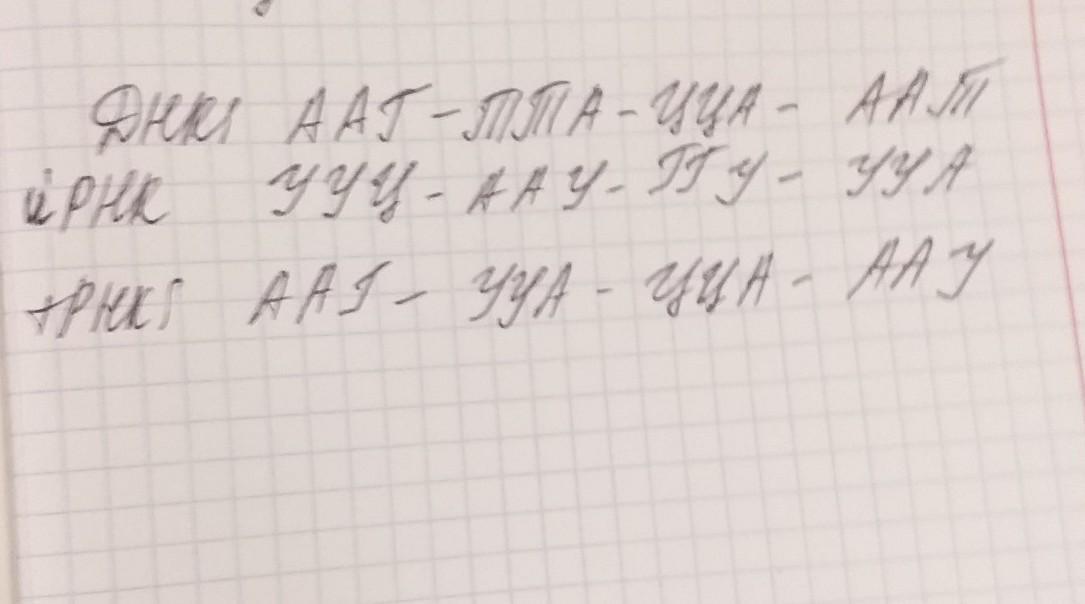 ДНК1 ААГ - ТТА - ЦЦА - ААТ
иРНК УУЦ - ААУ - ГГУ - УУА
тРНК1 ААГ - УУА - ЦЦА - ААУ